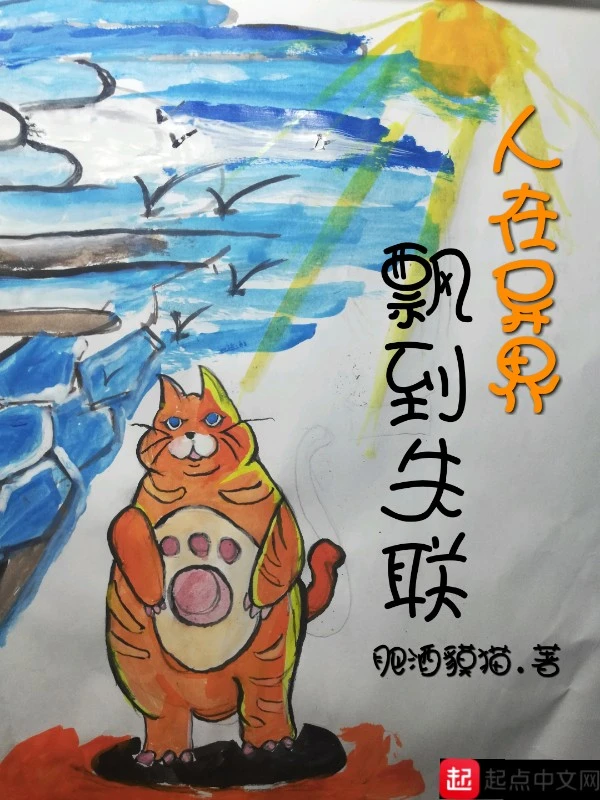 人在异界
飘到失联
肥酒貘猫.著
起 起点中文网